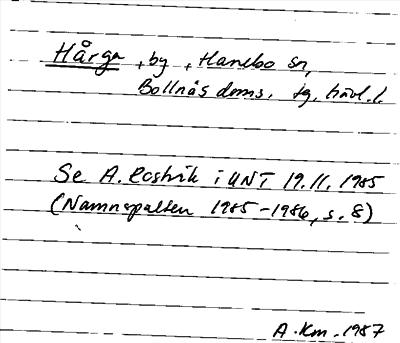 Hårga, by, Hanebo sn,
Bollnäs doms. fg. Gävl. l.
Se A. Rostvik i UNT 19.11.1985
(Namnspalten 1985-1986, s. 8)
A. Km. 1987